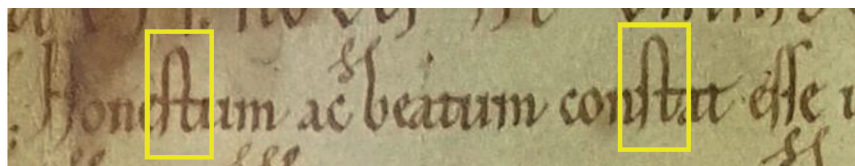 Honestum ac beatum constat esse